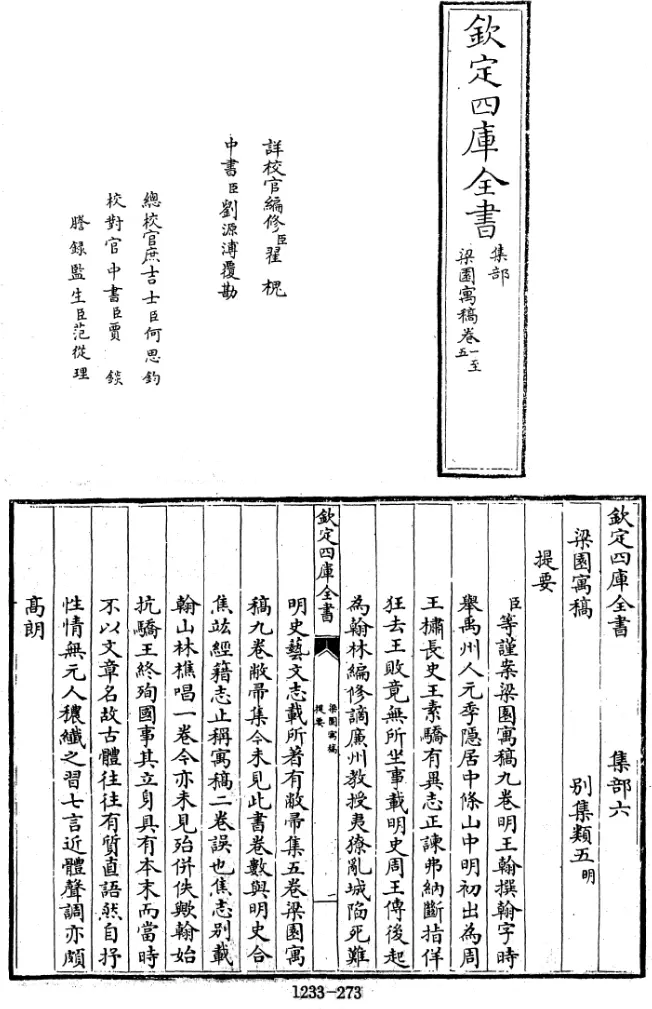 欽定四庫全書
集部
梁園寓稿卷一至五
詳校官編修臣翟槐
中書臣劉源溥覆勘
總校官庶吉士臣何思鈞
校對官中書臣賈錟
謄錄監生臣范從理
欽定四庫全書 集部六
梁園寓稿 別集類五明
提要
臣等謹案梁園寓稿九卷明王翰撰翰字時
舉禹州人元季隱居中條山中明初出為周
王橚長史王素驕有異志正諫弗納斷指佯
狂去王敗竟無所坐事載明史周王傳後起
為翰林編修謫廉州教授夷獠亂城陷死難
欽定四庫全書
梁園寓稿
提要
一
明史藝文志載所著有敝帚集五卷梁園寓
稿九卷敝帚集今未見此書卷數與明史合
焦竑經籍志止稱寓稿二卷誤也焦志別載
翰山林樵唱一卷今亦未見殆併佚歟翰始
抗驕王終殉國事其立身具有本末而當時
不以文章名故古體往往有質直語然自抒
性情無元人穠纖之習七言近體聲調亦頗
高朗
1233-273